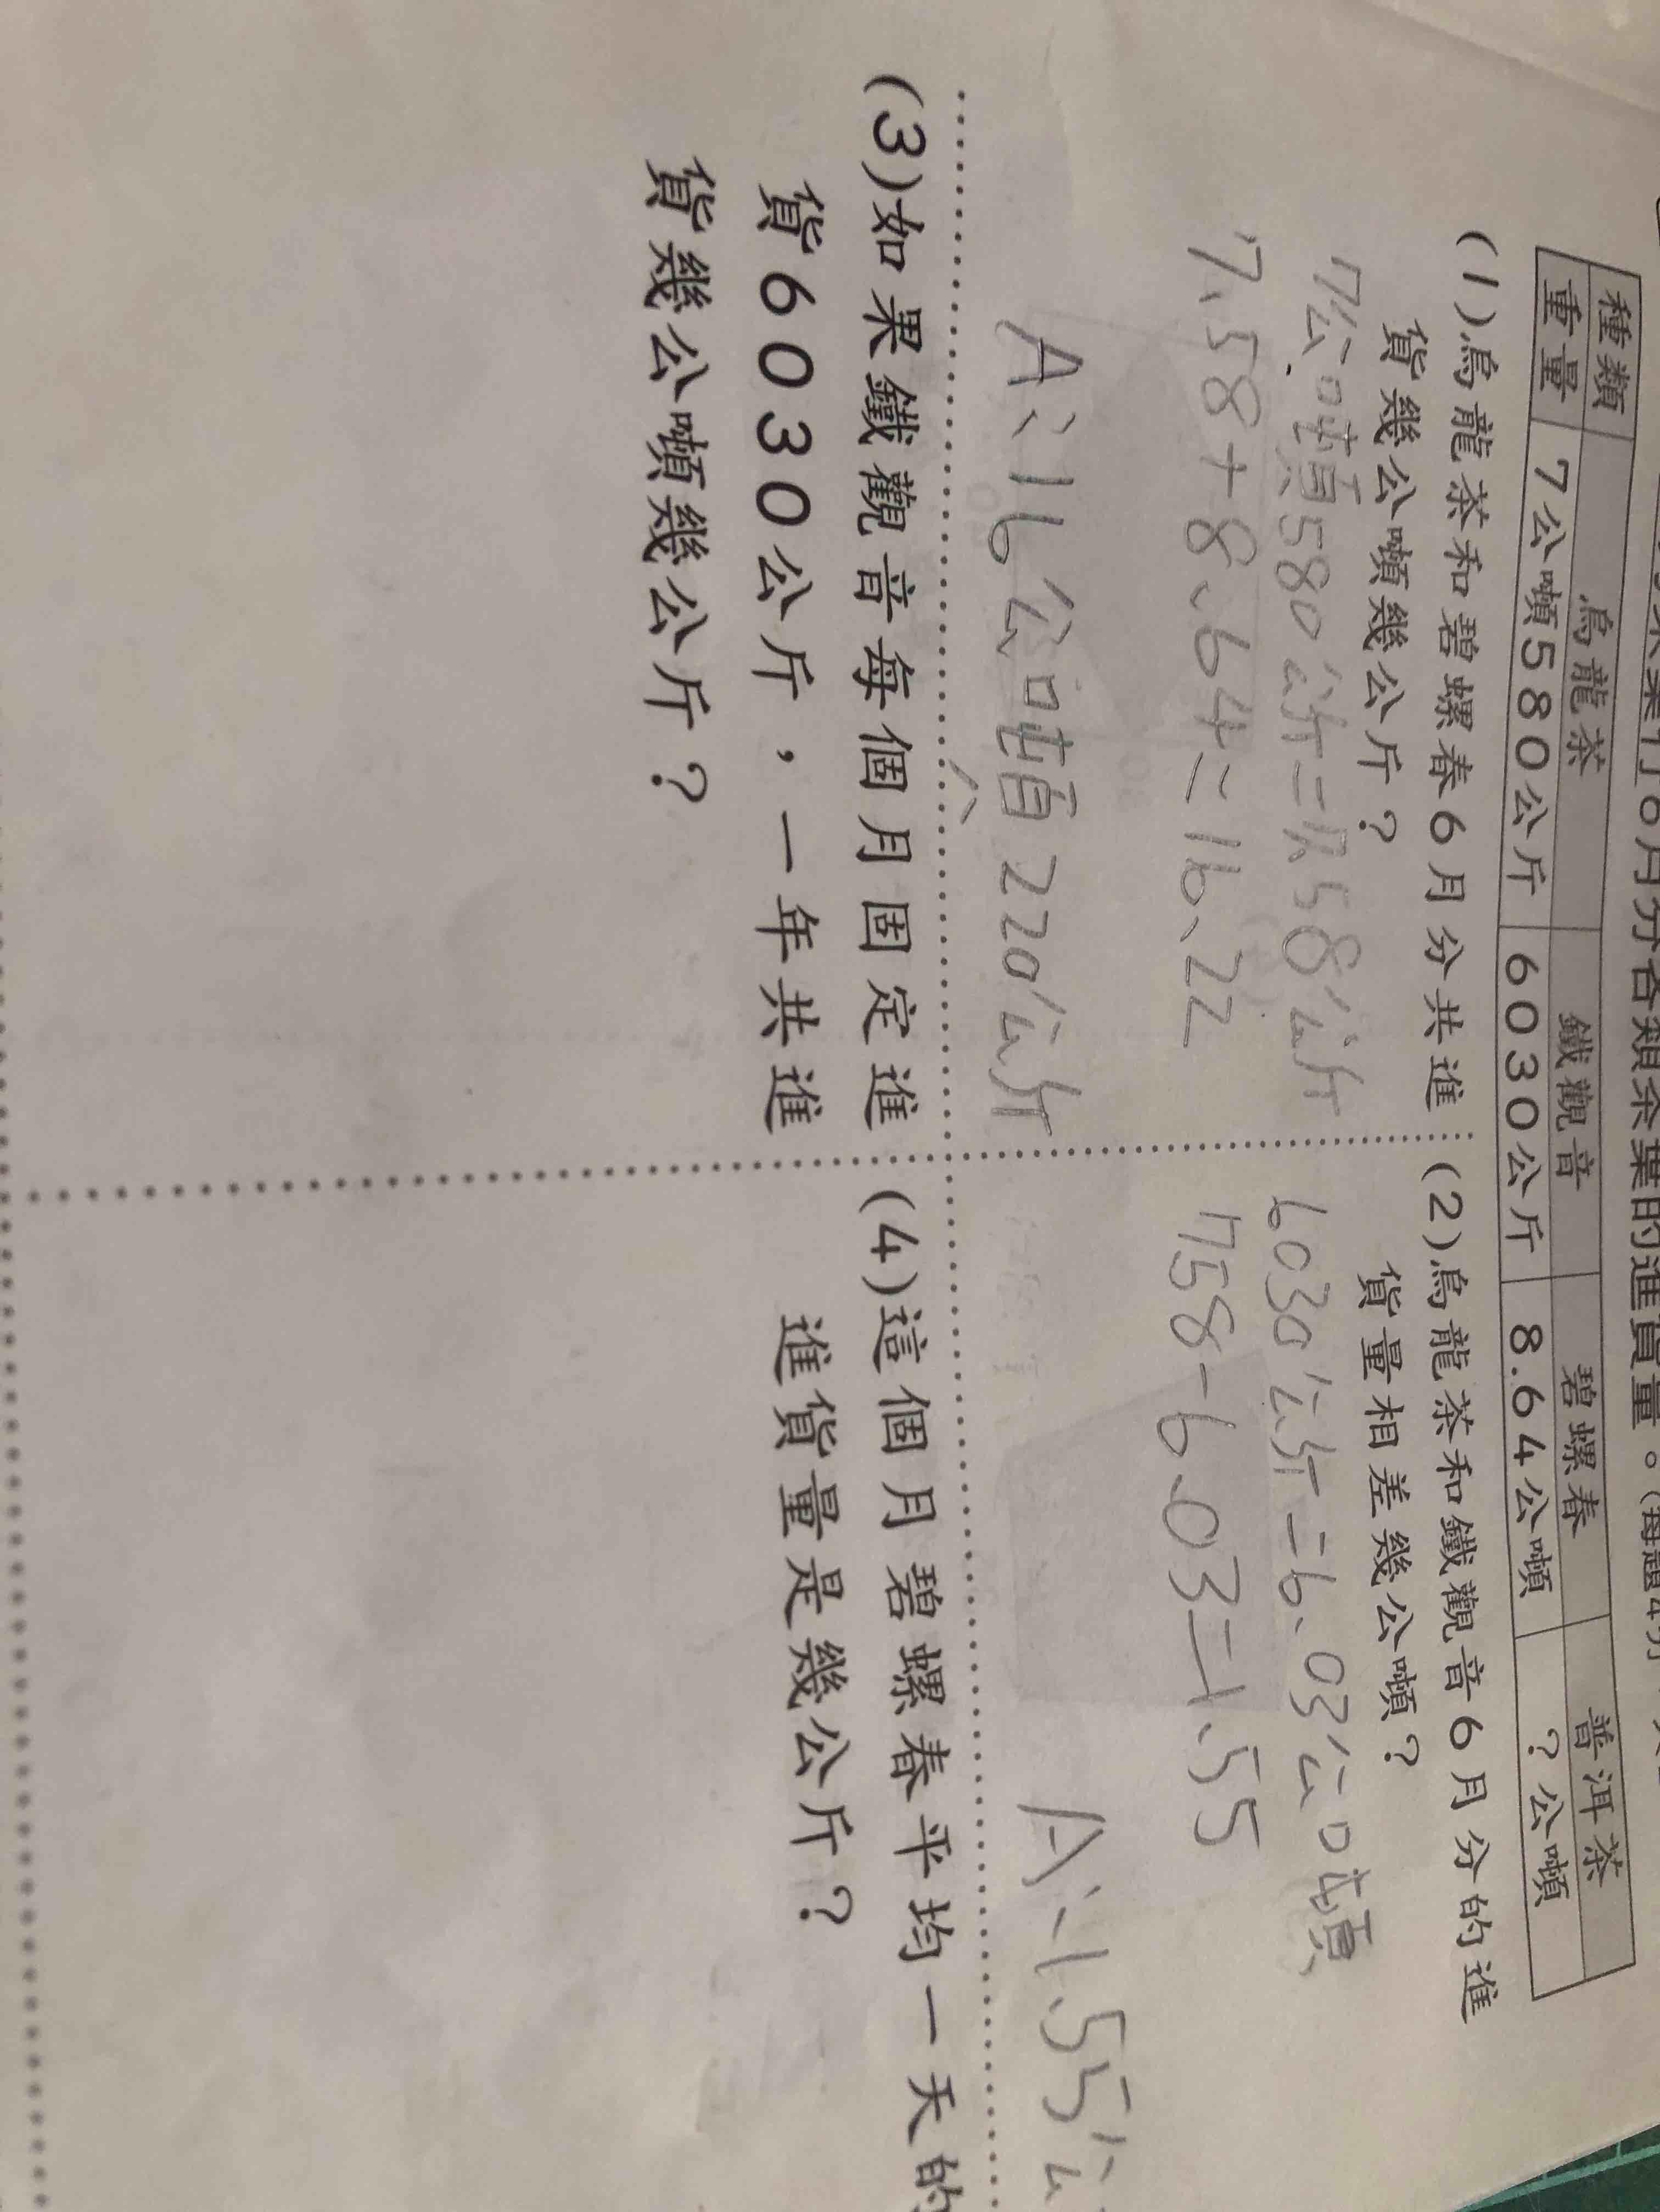 6月分各類茶葉的進貨量。(每題4分
種類 烏龍茶 鐵觀音 碧螺春 普洱茶
重量 7公噸580公斤 6030公斤 8.64公噸 ?公噸
(1)烏龍茶和碧螺春6月分共進
貨幾公噸幾公斤?
7公噸580公斤=7.58公斤
7.58+8.64=16.22
A:16公噸220公斤
(2)烏龍茶和鐵觀音6月分的進
貨量相差幾公噸?
6030公斤=6.03公噸
758-6.03=1.55
A:1.55公
(3)如果鐵觀音每個月固定進
貨6030公斤,一年共進
貨幾公噸幾公斤?
(4)這個月碧螺春平均一天的
進貨量是幾公斤?